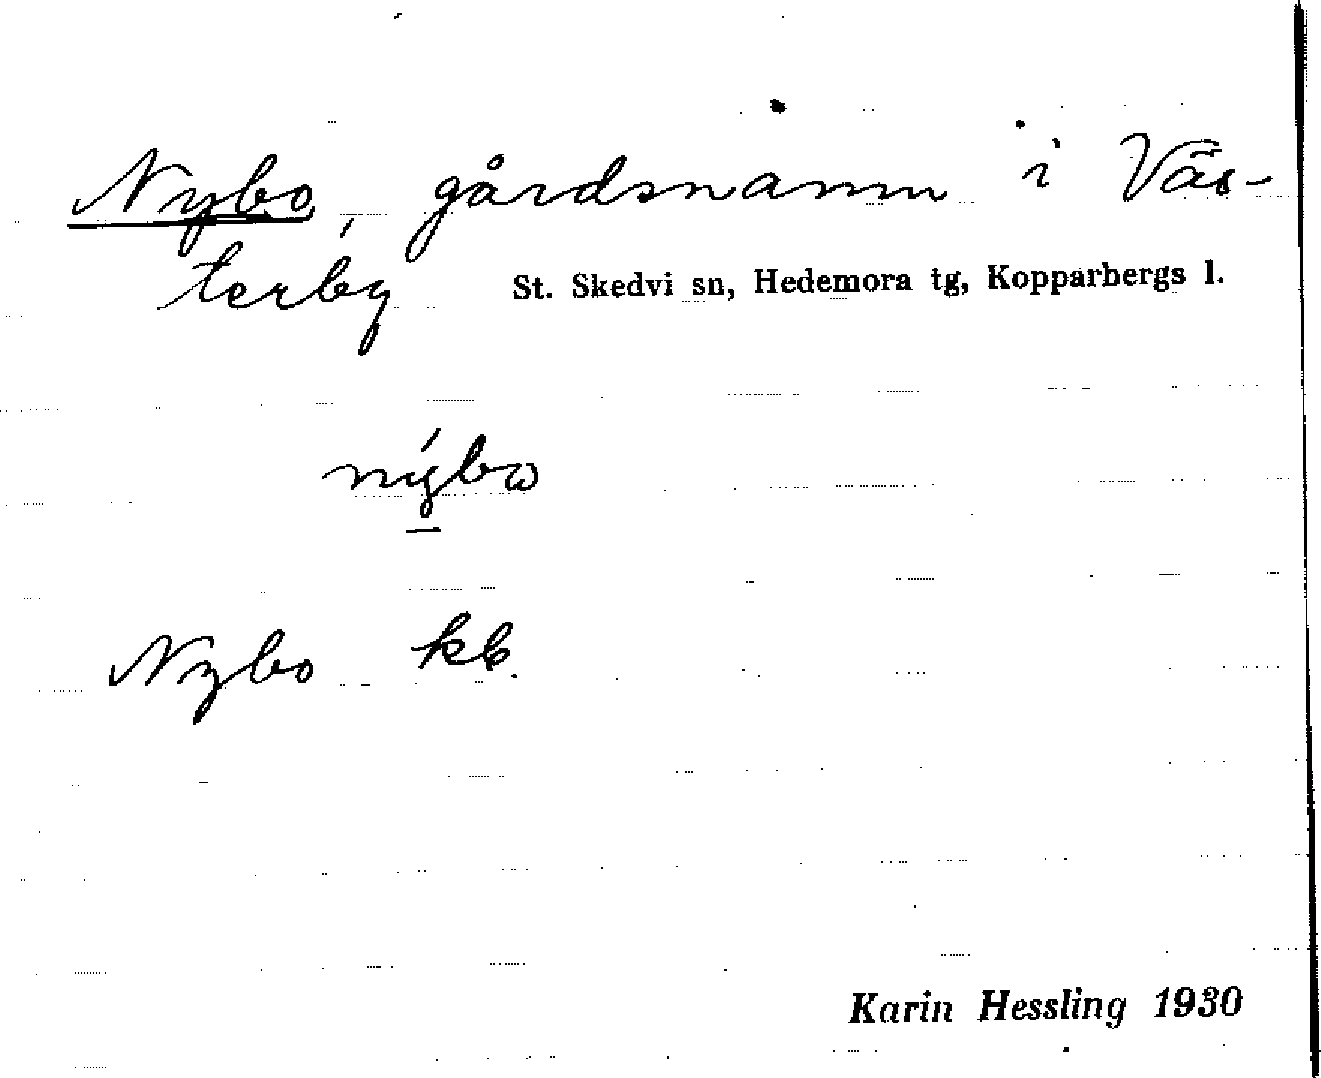 Nybo, gårdsnamn i Väs-
terby St. Skedvi sn, Hedemora tg, Kopparbergs l.
nýbω
Nybo kb.
Karin Hessling 1930